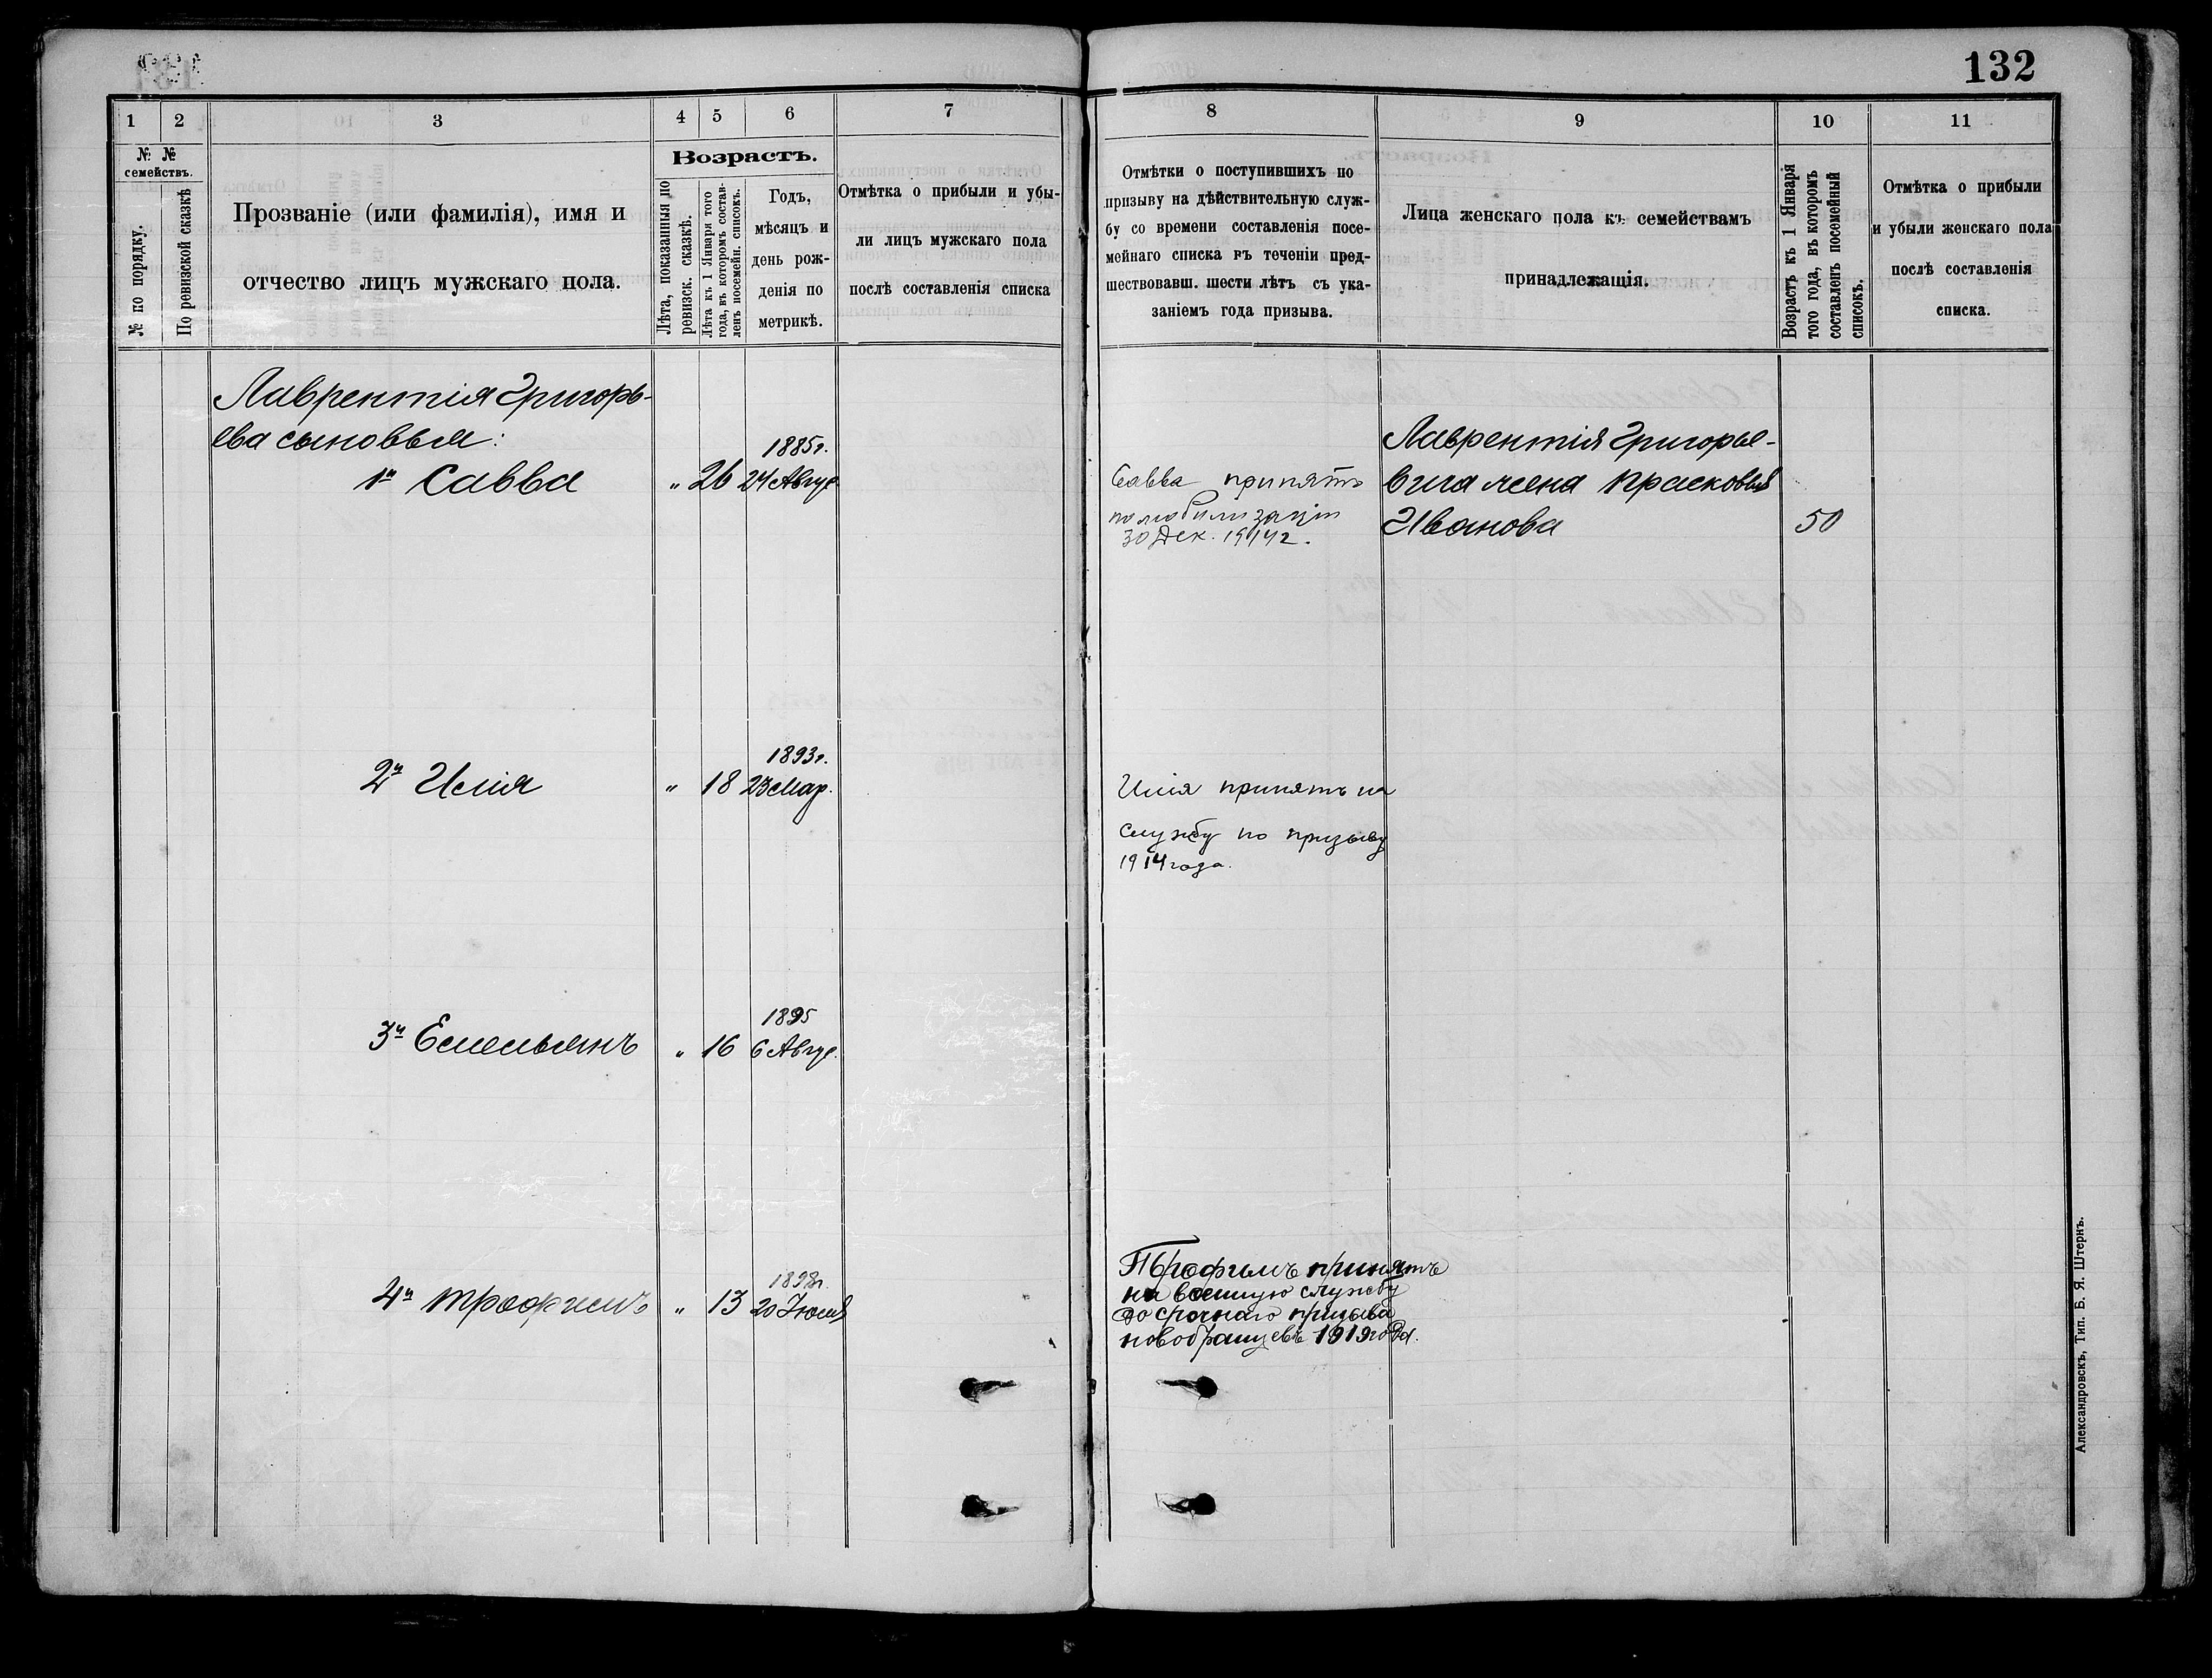 132
1
2
3
4
5
6
7
№ №
семействъ.
№ по порядку.
По ревизской сказкѣ
Прозваніе (или фамилія), имя и
отчество лицъ мужскаго пола.
Возрастъ.
Лѣта, показанныя по
ревизск. сказкѣ.
Лѣта къ 1 Января того
года, въ которомъ состав-
ленъ посемейн. списокъ.
Годъ,
мѣсяцъ и
день рож-
денія по
метрикѣ.
Отмѣтка о прибыли и убы-
ли лицъ мужскаго пола
послѣ составленія списка
Лаврентія Григорь-
ева сыновья:
1й Савва
" 26
1885г.
24 Авгус
2й Илія
" 18
1893г.
23 Мар.
3й Емельянъ
" 16
1895
6 Авгус.
4й Трофимъ
" 13
1898г.
20 Іюля
8
9
10
11
Отмѣтки о поступившихъ по
призыву на дѣйствительную служ-
бу со времени составленія посе-
мейнаго списка въ теченіи пред-
шествовавш. шести лѣтъ съ ука-
заніемъ года призыва.
Лица женскаго пола къ семействамъ
принадлежащія.
Возрастъ къ 1 Января
того года, въ которомъ
составленъ посемейный
списокъ.
Отмѣтка о прибыли
и убыли женскаго пола
послѣ составленія
списка.
Савва принятъ
по мобилизаціи
30 Дек. 1914 г.
Лаврентія Григорье-
вича жена Прасковья
Иванова
50
Илія принятъ на
службу по призыву
1914 года.
Трофимъ принятъ
на военную службу
досрочнаго призыва
новобранцевъ 1919 года.
Александровскъ, Тип. Б. Я. Штернъ.